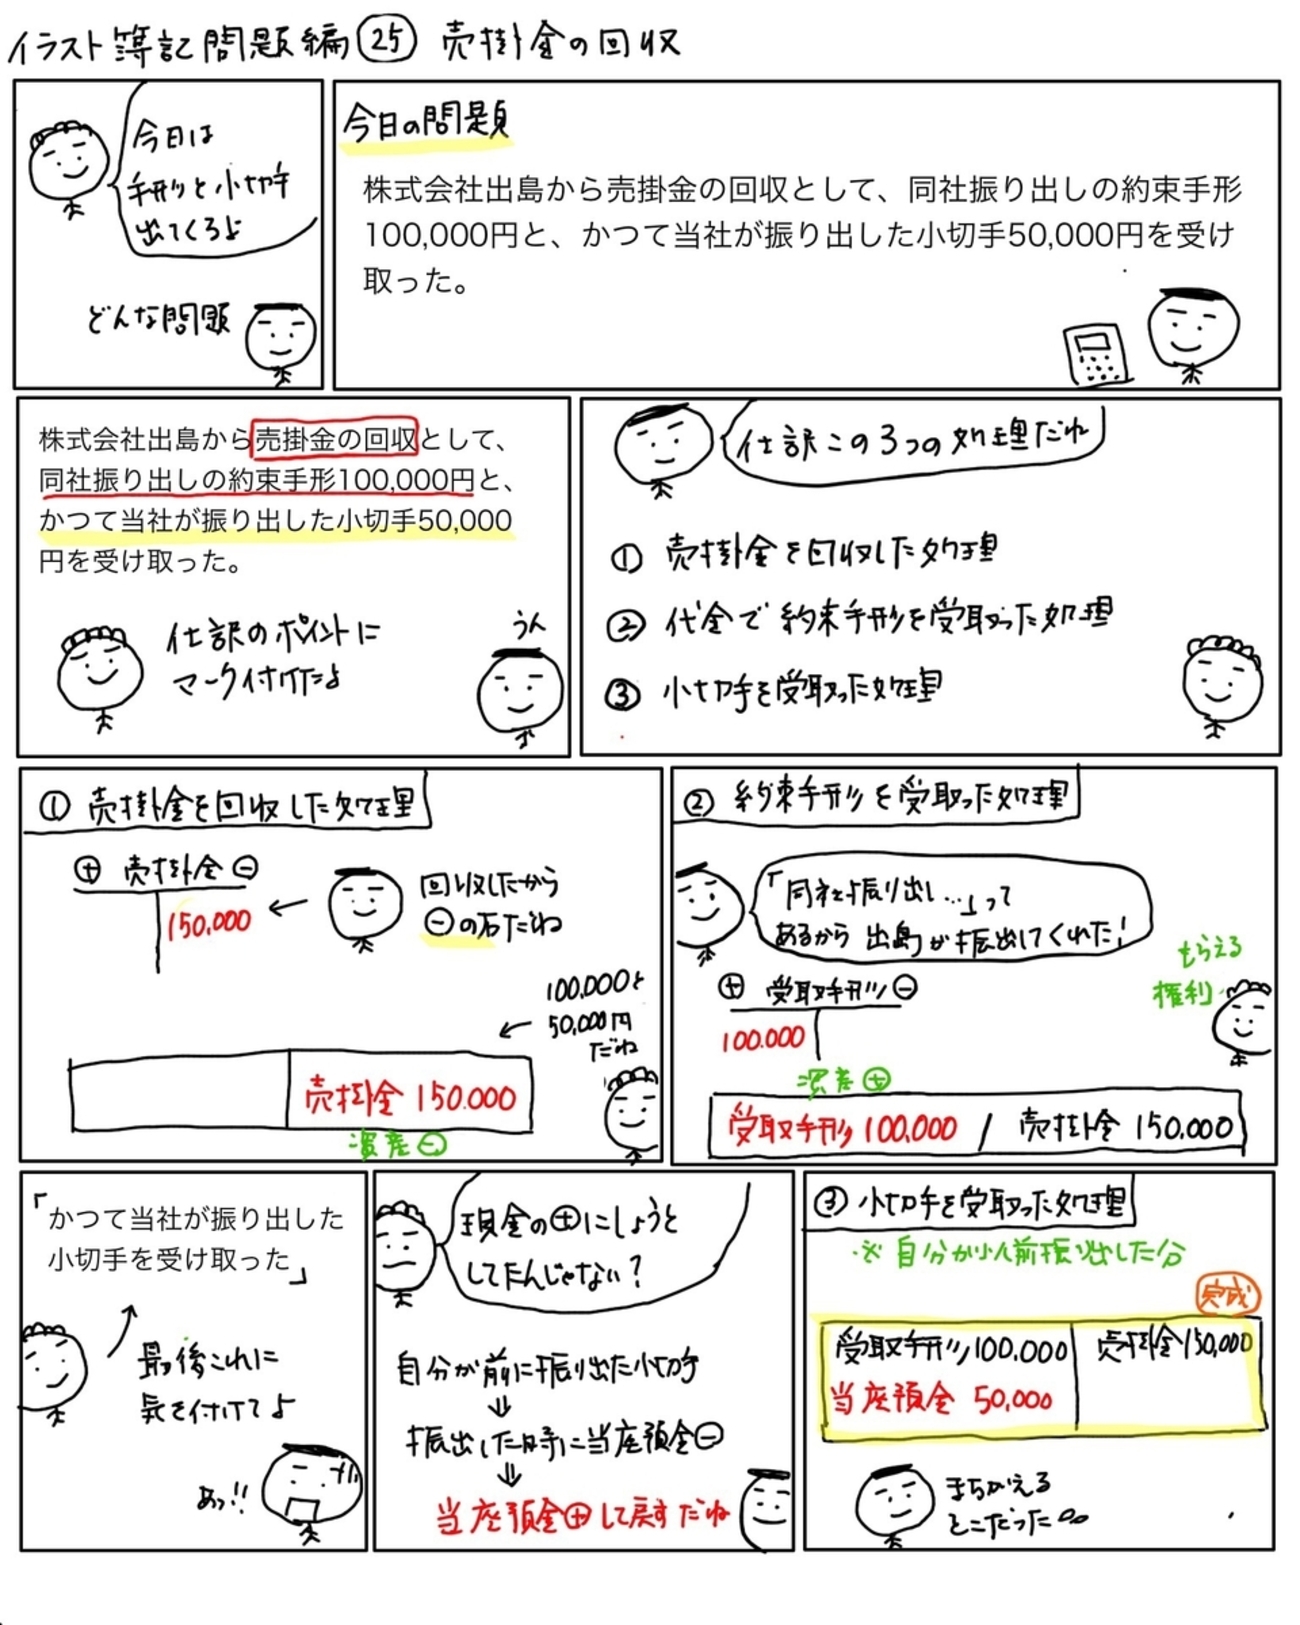 イラスト簿記問題編㉕ 売掛金の回収
今日は
手形と小切手
出てくるよ
どんな問題
今日の問題
株式会社出島から売掛金の回収として、同社振り出しの約束手形
100,000円と、かつて当社が振り出した小切手50,000円を受け
取った。
株式会社出島から売掛金の回収として、
同社振り出しの約束手形100,000円と、
かつて当社が振り出した小切手50,000
円を受け取った。
仕訳のポイントに
マーク付けたよ
うん
仕訳この3つの処理だね
① 売掛金を回収した処理
② 代金で約束手形を受取った処理
③ 小切手を受取った処理
① 売掛金を回収した処理
⊕ 売掛金 ⊖
150,000
← 回収したから
⊖の右だね
100,000と
← 50,000円
だね
売掛金 150.000
資産⊖
② 約束手形を受取った処理
「同社振り出し…」って
あるから 出島が振出してくれた!
もらえる
権利
⊕ 受取手形 ⊖
100.000
資産⊕
受取手形 100,000 / 売掛金 150,000
「かつて当社が振り出した
小切手を受け取った」
最後これに
気を付けてよ
あっ!!
現金の⊕にしようと
してたんじゃない?
自分が前に振り出た小切手
⇓
振出した時に当座預金⊖
⇓
当座預金⊕して戻すだね
③ 小切手を受取った処理
※ 自分が以前振り出した分
完成
受取手形 100,000 売掛金 150,000
当座預金 50,000
まちがえる
とこだった